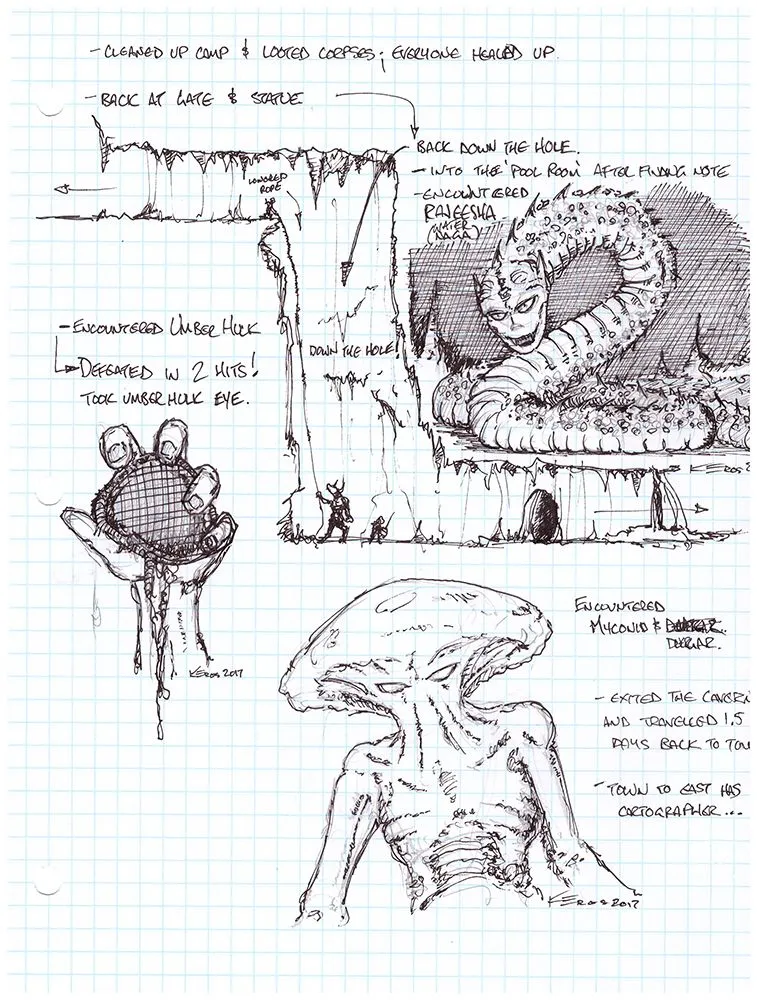 - CLEANED UP CAMP & LOOTED CORPSES; EVERYONE HEALED UP.
- BACK AT GATE & STATUE
BACK DOWN THE HOLE.
- INTO THE 'POOL ROOM' AFTER FINDING NOTE
- ENCOUNTERED
RAJEESHA
(WATER
NAGA)
LOWERED
ROPE
- ENCOUNTERED UMBER HULK
DEFEATED IN 2 HITS!
TOOK UMBER HULK EYE.
DOWN THE HOLE!
KEROS 2
KEROS 2017
ENCOUNTERED
MYCONID &
DUERGAR.
- EXITED THE CAVERN
AND TRAVELLED 1.5
DAYS BACK TO TOW
- TOWN TO EAST HAS
CARTOGRAPHER...
KEROS 2017